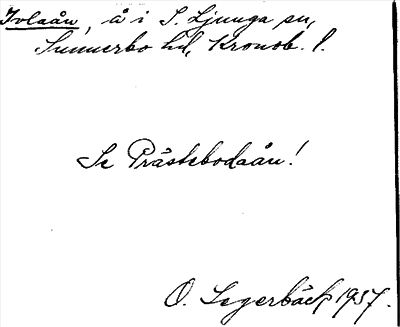 Ivlaån, å i S. Ljunga sn,
Sunnerbo hd, Kronob. l.
Se Prästebodaån!
O. Segerbäck 1937.